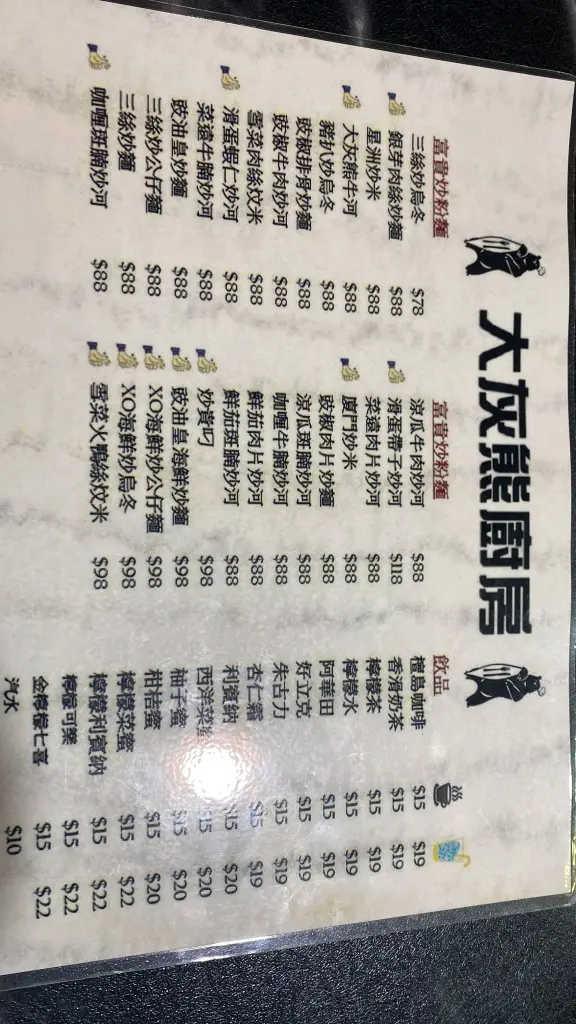 大灰熊廚房
富貴炒粉麵
三絲炒烏冬 $78
銀芽肉絲炒麵 $88
星洲炒米 $88
大灰熊牛河 $88
豬扒炒烏冬 $88
豉椒排骨炒麵 $88
豉椒牛肉炒河 $88
雪菜肉絲炆米 $88
滑蛋蝦仁炒河 $88
菜遠牛腩炒河 $88
豉油皇炒麵 $88
三絲炒公仔麵 $88
三絲炒麵 $88
咖喱斑腩炒河 $88
富貴炒粉麵
涼瓜牛肉炒河 $88
滑蛋帶子炒河 $118
菜遠肉片炒河 $88
廈門炒米 $88
豉椒肉片炒麵 $88
涼瓜斑腩炒河 $88
咖喱牛腩炒河 $88
鮮茄肉片炒河 $88
鮮茄斑腩炒河 $88
炒貴刁 $98
豉油皇海鮮炒麵 $98
XO海鮮炒公仔麵 $98
XO海鮮炒烏冬 $98
雪菜火鴨絲炆米 $98
飲品
檀島咖啡 $15 $19
香滑奶茶 $15 $19
檸檬茶 $15 $19
檸檬水 $15 $19
阿華田 $15 $19
好立克 $15 $19
朱古力 $15 $19
杏仁霜 $15 $19
利賓納 $15 $20
西洋菜 $15 $20
柚子蜜 $15 $20
柑桔蜜 $15 $20
檸檬菜蜜 $15 $22
檸檬利賓納 $15 $22
檸檬可樂 $15 $22
金檸檬七喜 $15 $22
汽水 $10